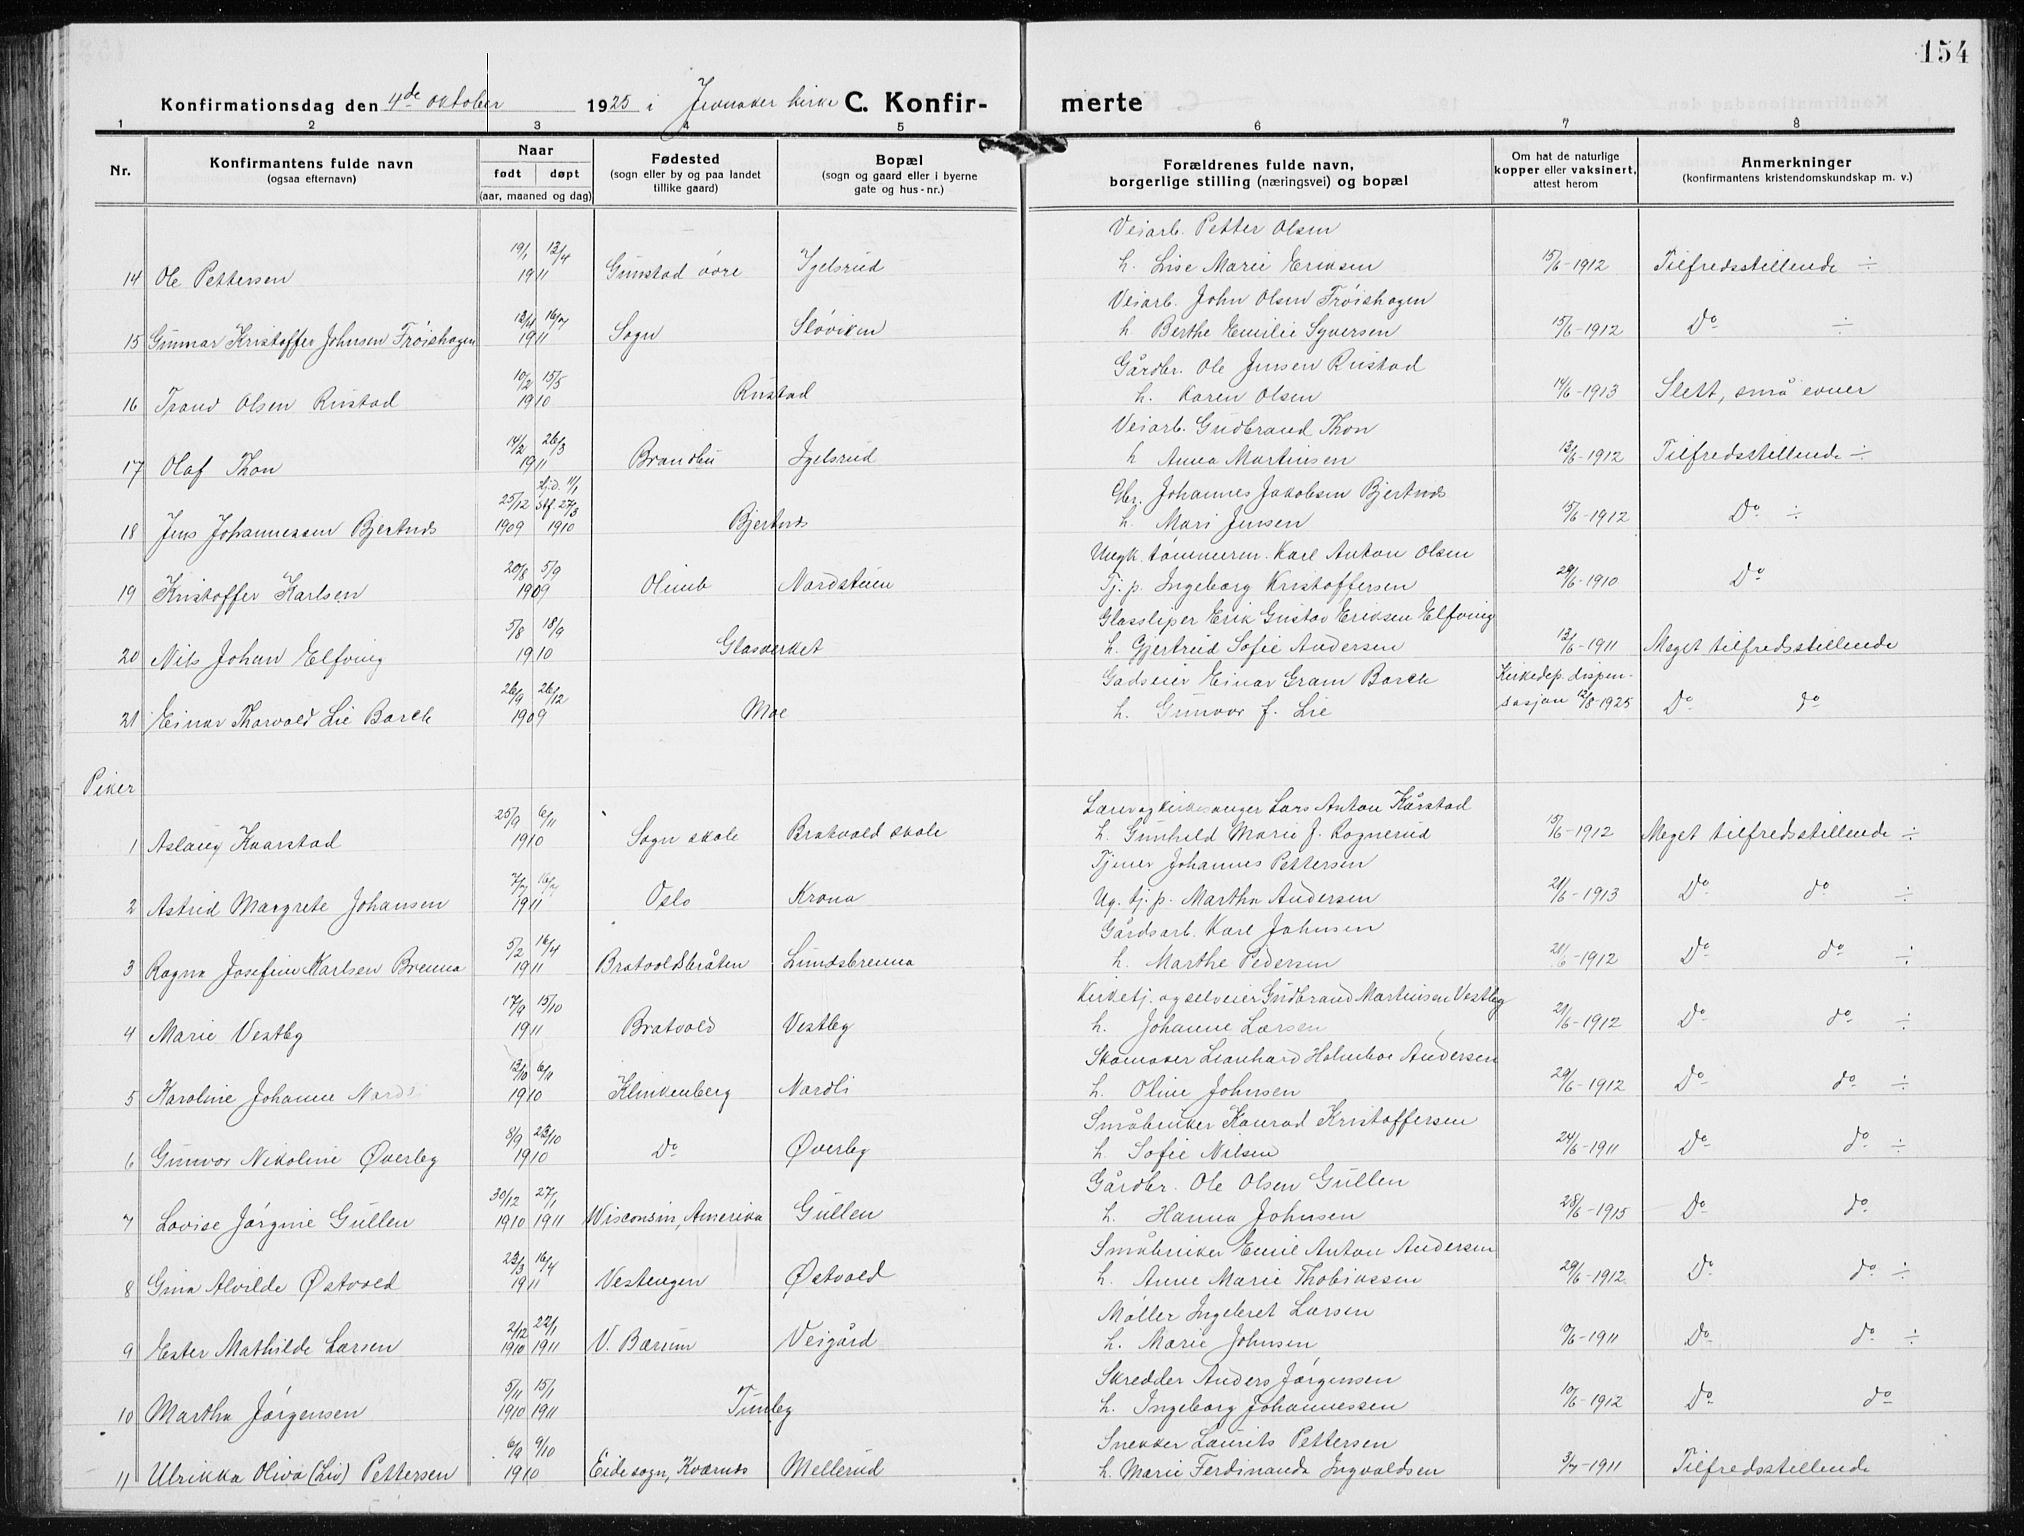 154
Konfirmationsdag den 4de oktober 1925 i Jevnaker kirke C. Konfir- merte
1 2 3 4 5 6 7 8
Nr.
Konfirmantens fulde navn
(ogsaa efternavn)
Naar
født døpt
(aar, maaned og dag)
Fødested
(sogn eller by og paa landet
tillike gaard)
Bopæl
(sogn og gaard eller i byerne
gate og hus-nr.)
Forældrenes fulde navn,
borgerlige stilling (næringsvei) og bopæl
Om hat de naturlige
kopper eller vaksinert,
attest herom
Anmerkninger
(konfirmantens kristendomskundskap m. v.)
Veiarb. Petter Olsen
14 Ole Pettersen 19/1 13/4 1911 Gunstad øvre Igelsrud h. Lise Marie Eriksen 15/6-1912 Tilfredsstillende ÷
Veiarb. John Olsen Frøishagen
15 Gunnar Kristoffer Johnsen Frøishagen 16/7 1911 Sogn Sløviken h. Berthe Emilie Syversen 15/6-1912 Do ÷
Gårdbr. Ole Jensen Rustad
16 Trond Olsen Rustad 10/2 15/5 1910 Rustad h. Karen Olsen 14/6-1913 Slett, små evner
Veiarb. Gudbrand Thon
17 Olaf Thon 14/2 26/3 1911 Brandbu Igelsrud h. Anna Martinsen 13/6-1912 Tilfredsstillende ÷
Gbr. Johannes Jakobsen Bjertnes
18 Jens Johannessen Bjertnes 25/12 1909 hj.d. 11/1 stf. 27/3 1910 Bjertnes h. Mari Jensen 15/6-1912 Do ÷
Ungk. tømmerm. Karl Anton Olsen
19 Kristoffer Karlsen 20/8 5/9 1909 Olimb Nordstuen Tj. p. Ingeborg Kristoffersen 29/6-1910 Do
Glassliper Erik Gustav Eriksen Elfving
20 Nils Johan Elfving 5/8 18/9 1910 Glasverket h. Gjertrud Sofie Andersen 13/6-1911 Meget tilfredsstillende
Godseier Einar Gram Borch Kirkedep. dispen-
21 Einar Thorvald Lie Borch 26/9 26/12 1909 Moe h. Gunvor f. Lie sasjon 12/8-1925 Do do
Piker
Lærer og kirkesanger Lars Anton Kårstad
1 Aslaug Kaarstad 25/9 6/11 1910 Sogn skole Bratvold skole h. Gunhild Marie J. Rognerud 15/6-1912 Meget tilfredsstillende ÷
Tjener Johannes Pettersen
2 Astrid Margrete Johansen 7/7 16/7 1911 Oslo Krona Ug. tj. p. Martha Andersen 21/6-1913 Do do ÷
Gårdsarb. Karl Johnsen
3 Ragna Josefine Karlsen Brenna 5/2 16/4 1911 Bratvoldsbråten Lundsbrenna h. Marthe Pedersen 21/6-1912 Do do ÷
Kirketj. og selveier Gudbrand Martinsen Vestby
4 Marie Vestby 17/9 15/10 1911 Bratvold Vestby h. Johanne Larsen 21/6-1912 Do do ÷
Skomaker Leonhard Holmboe Andersen
5 Karoline Johanne Nordli 12/10 6/11 1910 Klinkenberg Nordli h. Oline Johnsen 29/6-1912 Do do ÷
Småbruker Konrad Kristoffersen
6 Gunvor Nikoline Øverby 8/9 23/10 1910 Do Øverby h. Sofie Nilsen 24/6-1911 Do do ÷
Gårdbr. Ole Olsen Gullen
7 Lovise Jørgine Gullen 30/12 27/1 1910 1911 Wisconsin, Amerika Gullen h. Hanna Johnsen 28/6-1915 Do do
Småbruker Emil Anton Andersen
8 Gina Alvilde Østvold 23/3 16/4 1911 Vestengen Østvold h. Anne Marie Thobiassen 29/6-1912 Do do ÷
Møller Ingebret Larsen
9 Ester Mathilde Larsen 2/12 22/1 1910 1911 V. Bærum Veigård h. Marie Johnsen -1911 Do do ÷
Skredder Anders Jørgensen
10 Martha Jørgensen 5/11 15/1 1910 1911 Tunby h. Ingeborg Johannessen 10/6-1912 Do do
Snekker Laurits Pettersen
11 Ulrikka Oliva (Liv) Pettersen 6/9 9/10 1910 Eide sogn, Kværnes Mellerud h. Marie Ferdinanda Ingvaldsen 3/7-1911 Tilfredsstillende